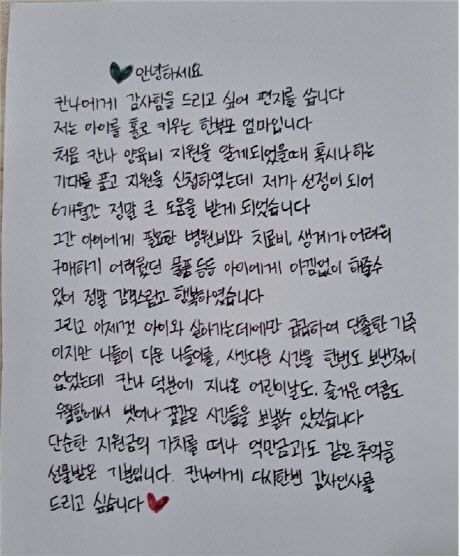 안녕하세요
칸나에게 감사함을 드리고 싶어 편지를 씁니다
저는 아이를 홀로 키우는 한부모 엄마입니다
처음 칸나 양육비 지원을 알게되었을때 혹시나 하는
기대를 품고 지원을 신청하였는데 제가 선정이 되어
6개월간 정말 큰 도움을 받게 되었습니다
그간 아이에게 필요한 병원비와 치료비, 생계가 어려워
구매하기 어려웠던 물품 등등 아이에게 아낌없이 해줄수
있어 정말 감격스럽고 행복하였습니다
그리고 이제껏 아이와 살아가는데에만 급급하여 단촐한 가족
이지만 나들이 다운 나들이를, 시간다운 시간을 한번도 보낸적이
없었는데 칸나 덕분에 지나온 어린이날도, 즐거운 여름도
우울함에서 벗어나 꿈같은 시간들을 보낼수 있었습니다
단순한 지원금의 가치를 떠나 억만금과도 같은 추억을
선물받은 기분입니다. 칸나에게 다시한번 감사인사를
드리고 싶습니다